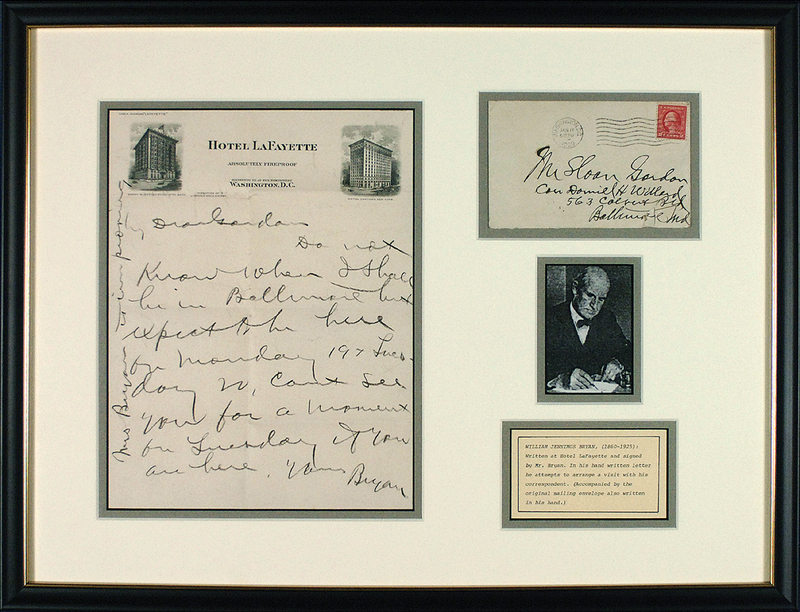 HOTEL LAFAYETTE
ABSOLUTELY FIREPROOF
WASHINGTON, D.C.
My Dear Gordon
Do not
Know when I shall
be in Baltimore but
expect to be here
on Monday 19 & Tues-
day 20, Can't see
you for a moment
on Tuesday if you
are here, Yours
Bryan
Mrs Bryan is improving
Mr Sloan Gordon
Care Daniel H Willard
563 Calvert Bld
Baltimore Md
WILLIAM JENNINGS BRYAN, (1860-1925):
Written at Hotel LaFayette and signed
by Mr. Bryan. In his hand written letter
he attempts to arrange a visit with his
correspondent. (Accompanied by the
original mailing envelope also written
in his hand.)